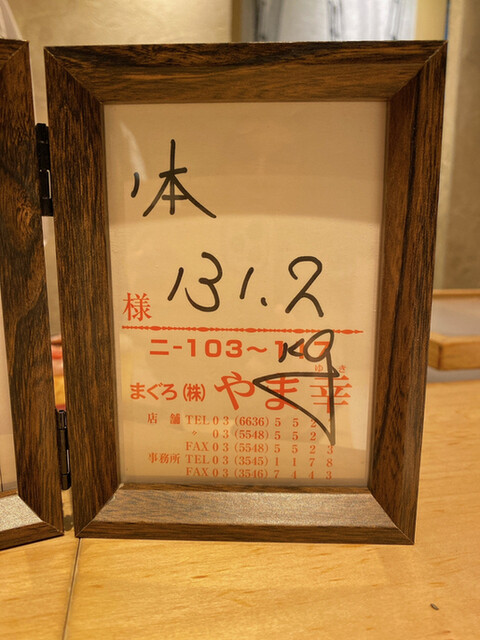 1本
131.2
様
kg
ニ-103〜117
まぐろ(株)やま幸
ゆき
店 舗 TEL 03(6636)552
〃 03(5548)552
FAX 03(5548)5523
事務所 TEL 03(3545)1178
FAX 03(3546)7443